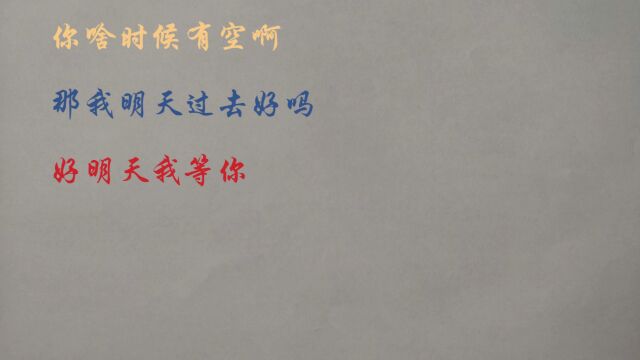 你啥时候有空啊
那我明天过去好吗
好明天我等你